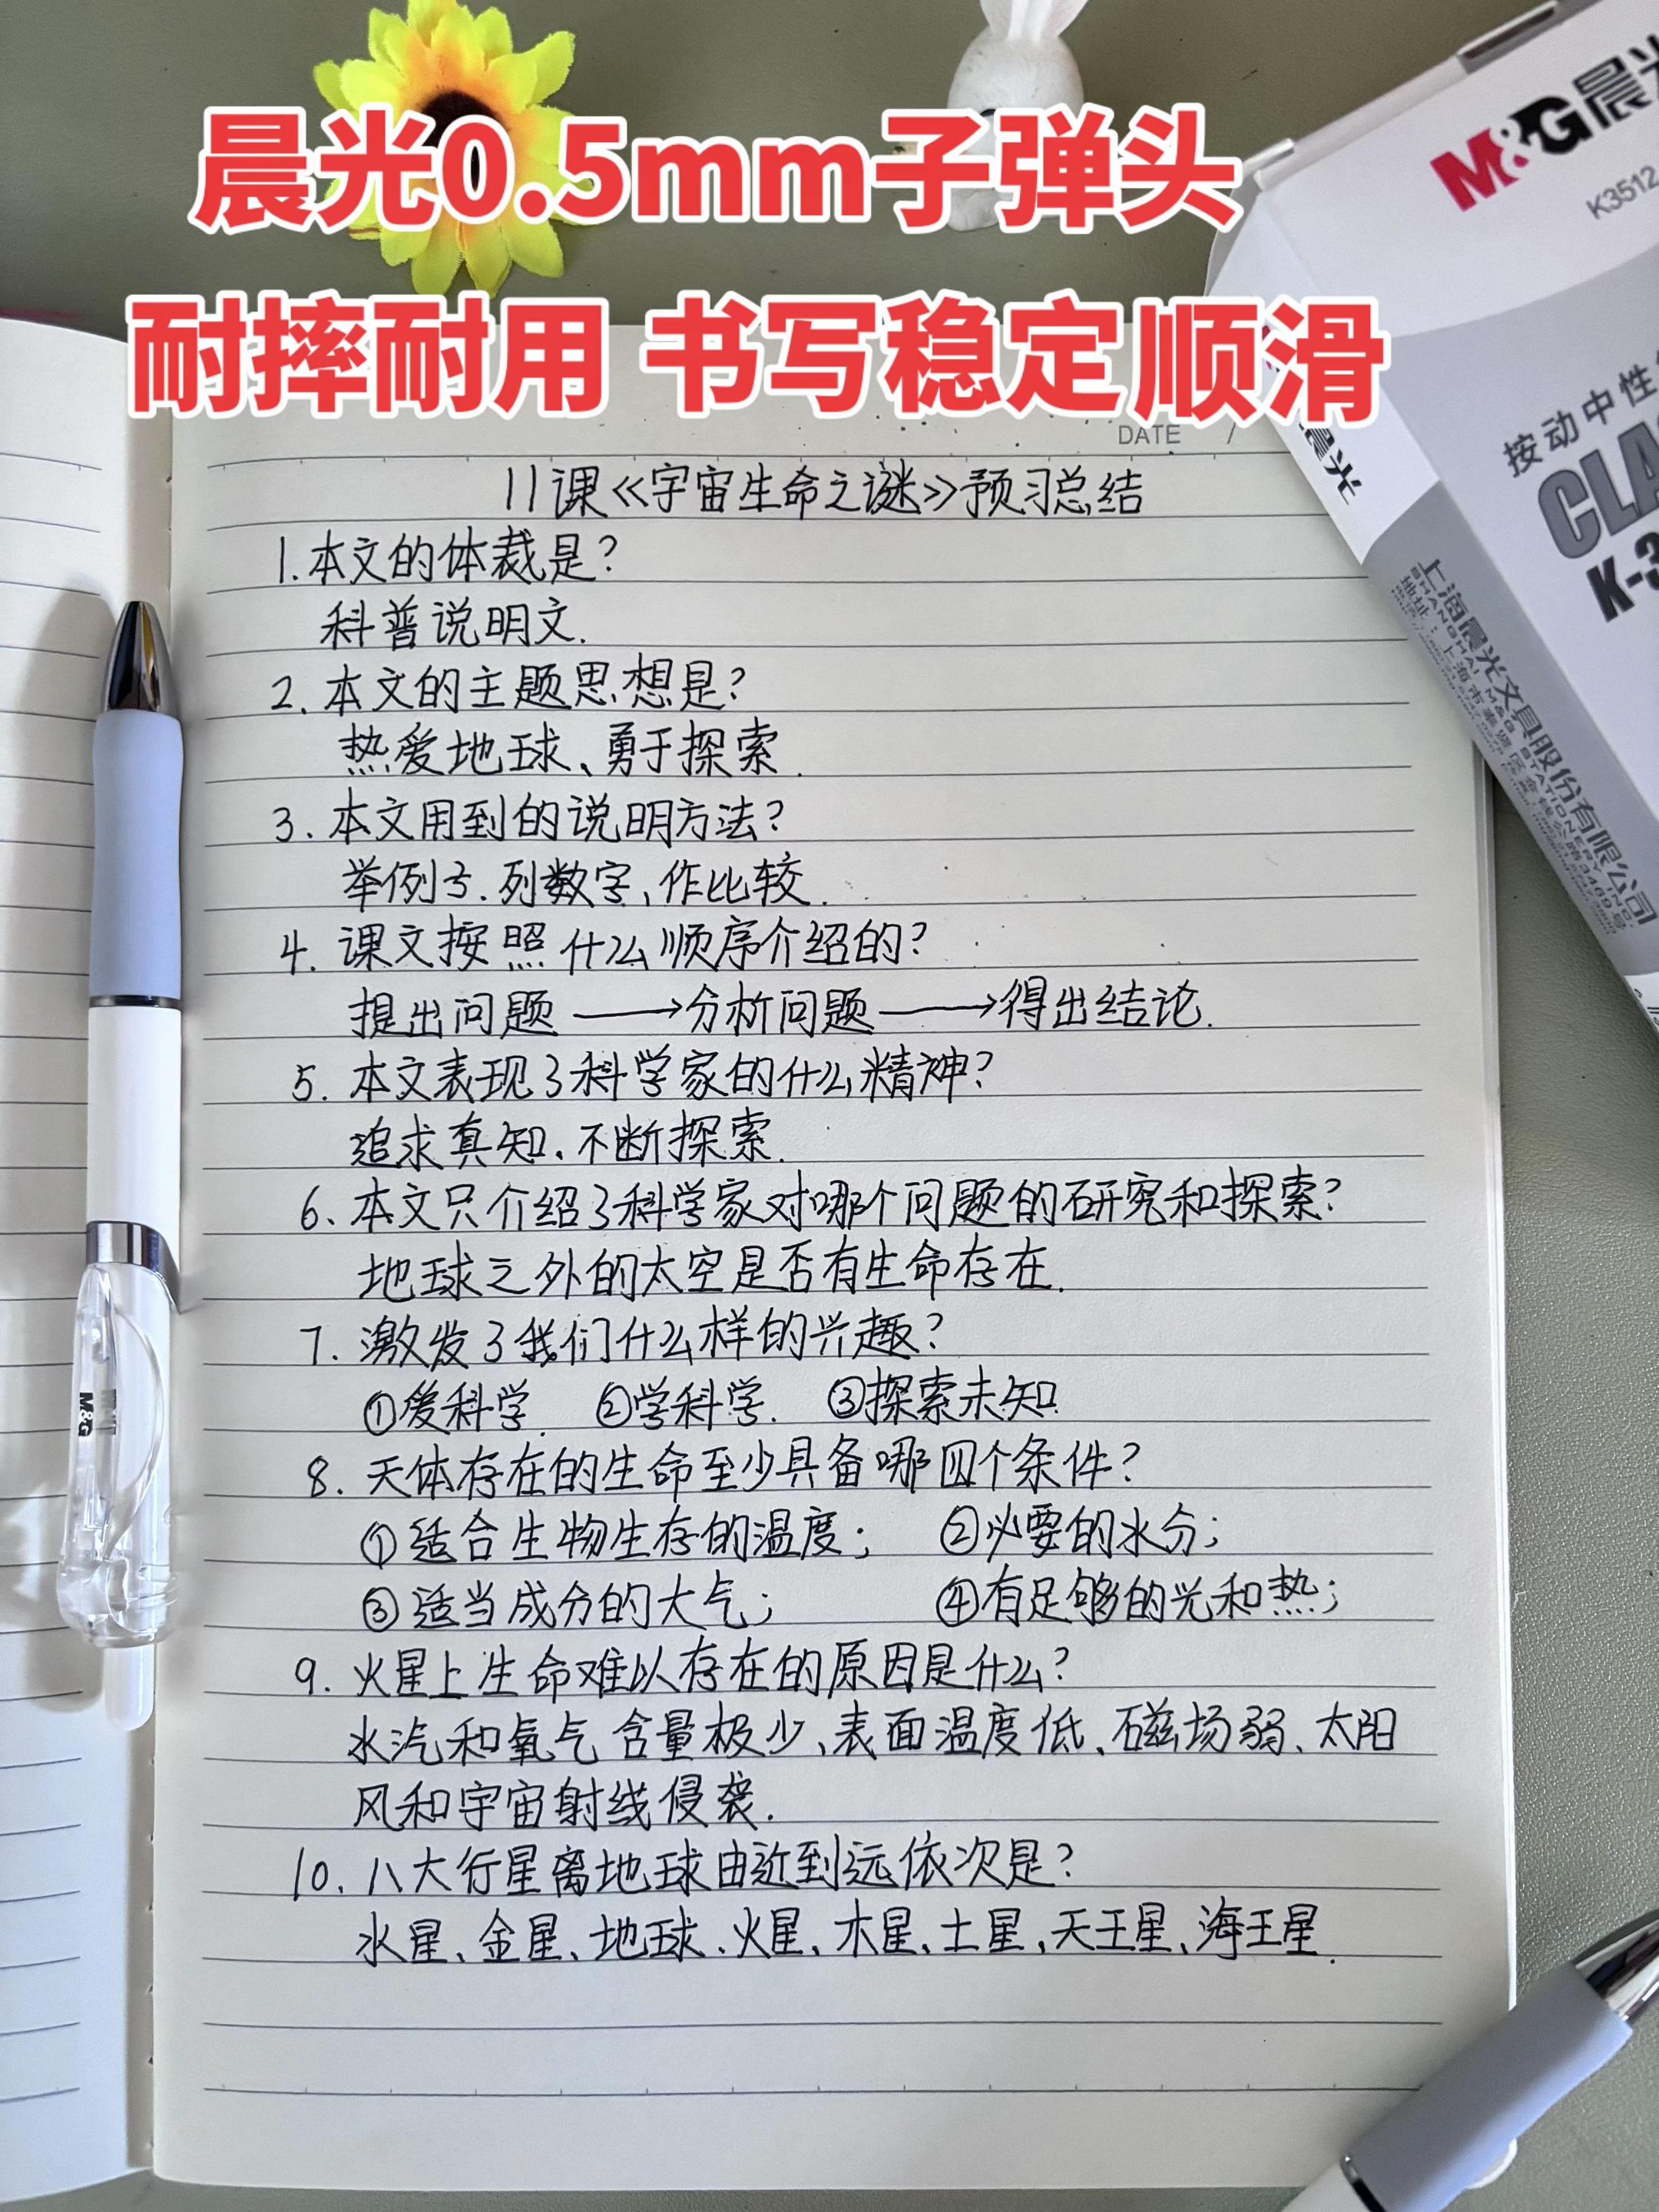 晨光0.5mm子弹头
耐摔耐用 书写稳定顺滑
M&G晨光
K3512
按动中性
CLA
K-3
晨光
上海晨光文具股份有限公司
SHANGHAI M&G STATIONERY INC.
DATE /
11课《宇宙生命之谜》预习总结
1.本文的体裁是?
科普说明文.
2.本文的主题思想是?
热爱地球、勇于探索.
3.本文用到的说明方法?
举例子.列数字、作比较.
4.课文按照什么顺序介绍的?
提出问题→分析问题→得出结论.
5.本文表现了科学家的什么精神?
追求真知、不断探索.
6.本文只介绍了科学家对哪个问题的研究和探索?
地球之外的太空是否有生命存在.
7.激发了我们什么样的兴趣?
①爱科学. ②学科学. ③探索未知
8.天体存在的生命至少具备哪四个条件?
①适合生物生存的温度; ②必要的水分;
③适当成分的大气; ④有足够的光和热;
9.火星上生命难以存在的原因是什么?
水汽和氧气含量极少、表面温度低、磁场弱、太阳
风和宇宙射线侵袭.
10.八大行星离地球由近到远依次是?
水星、金星、地球、火星、木星、土星、天王星、海王星.
M&G